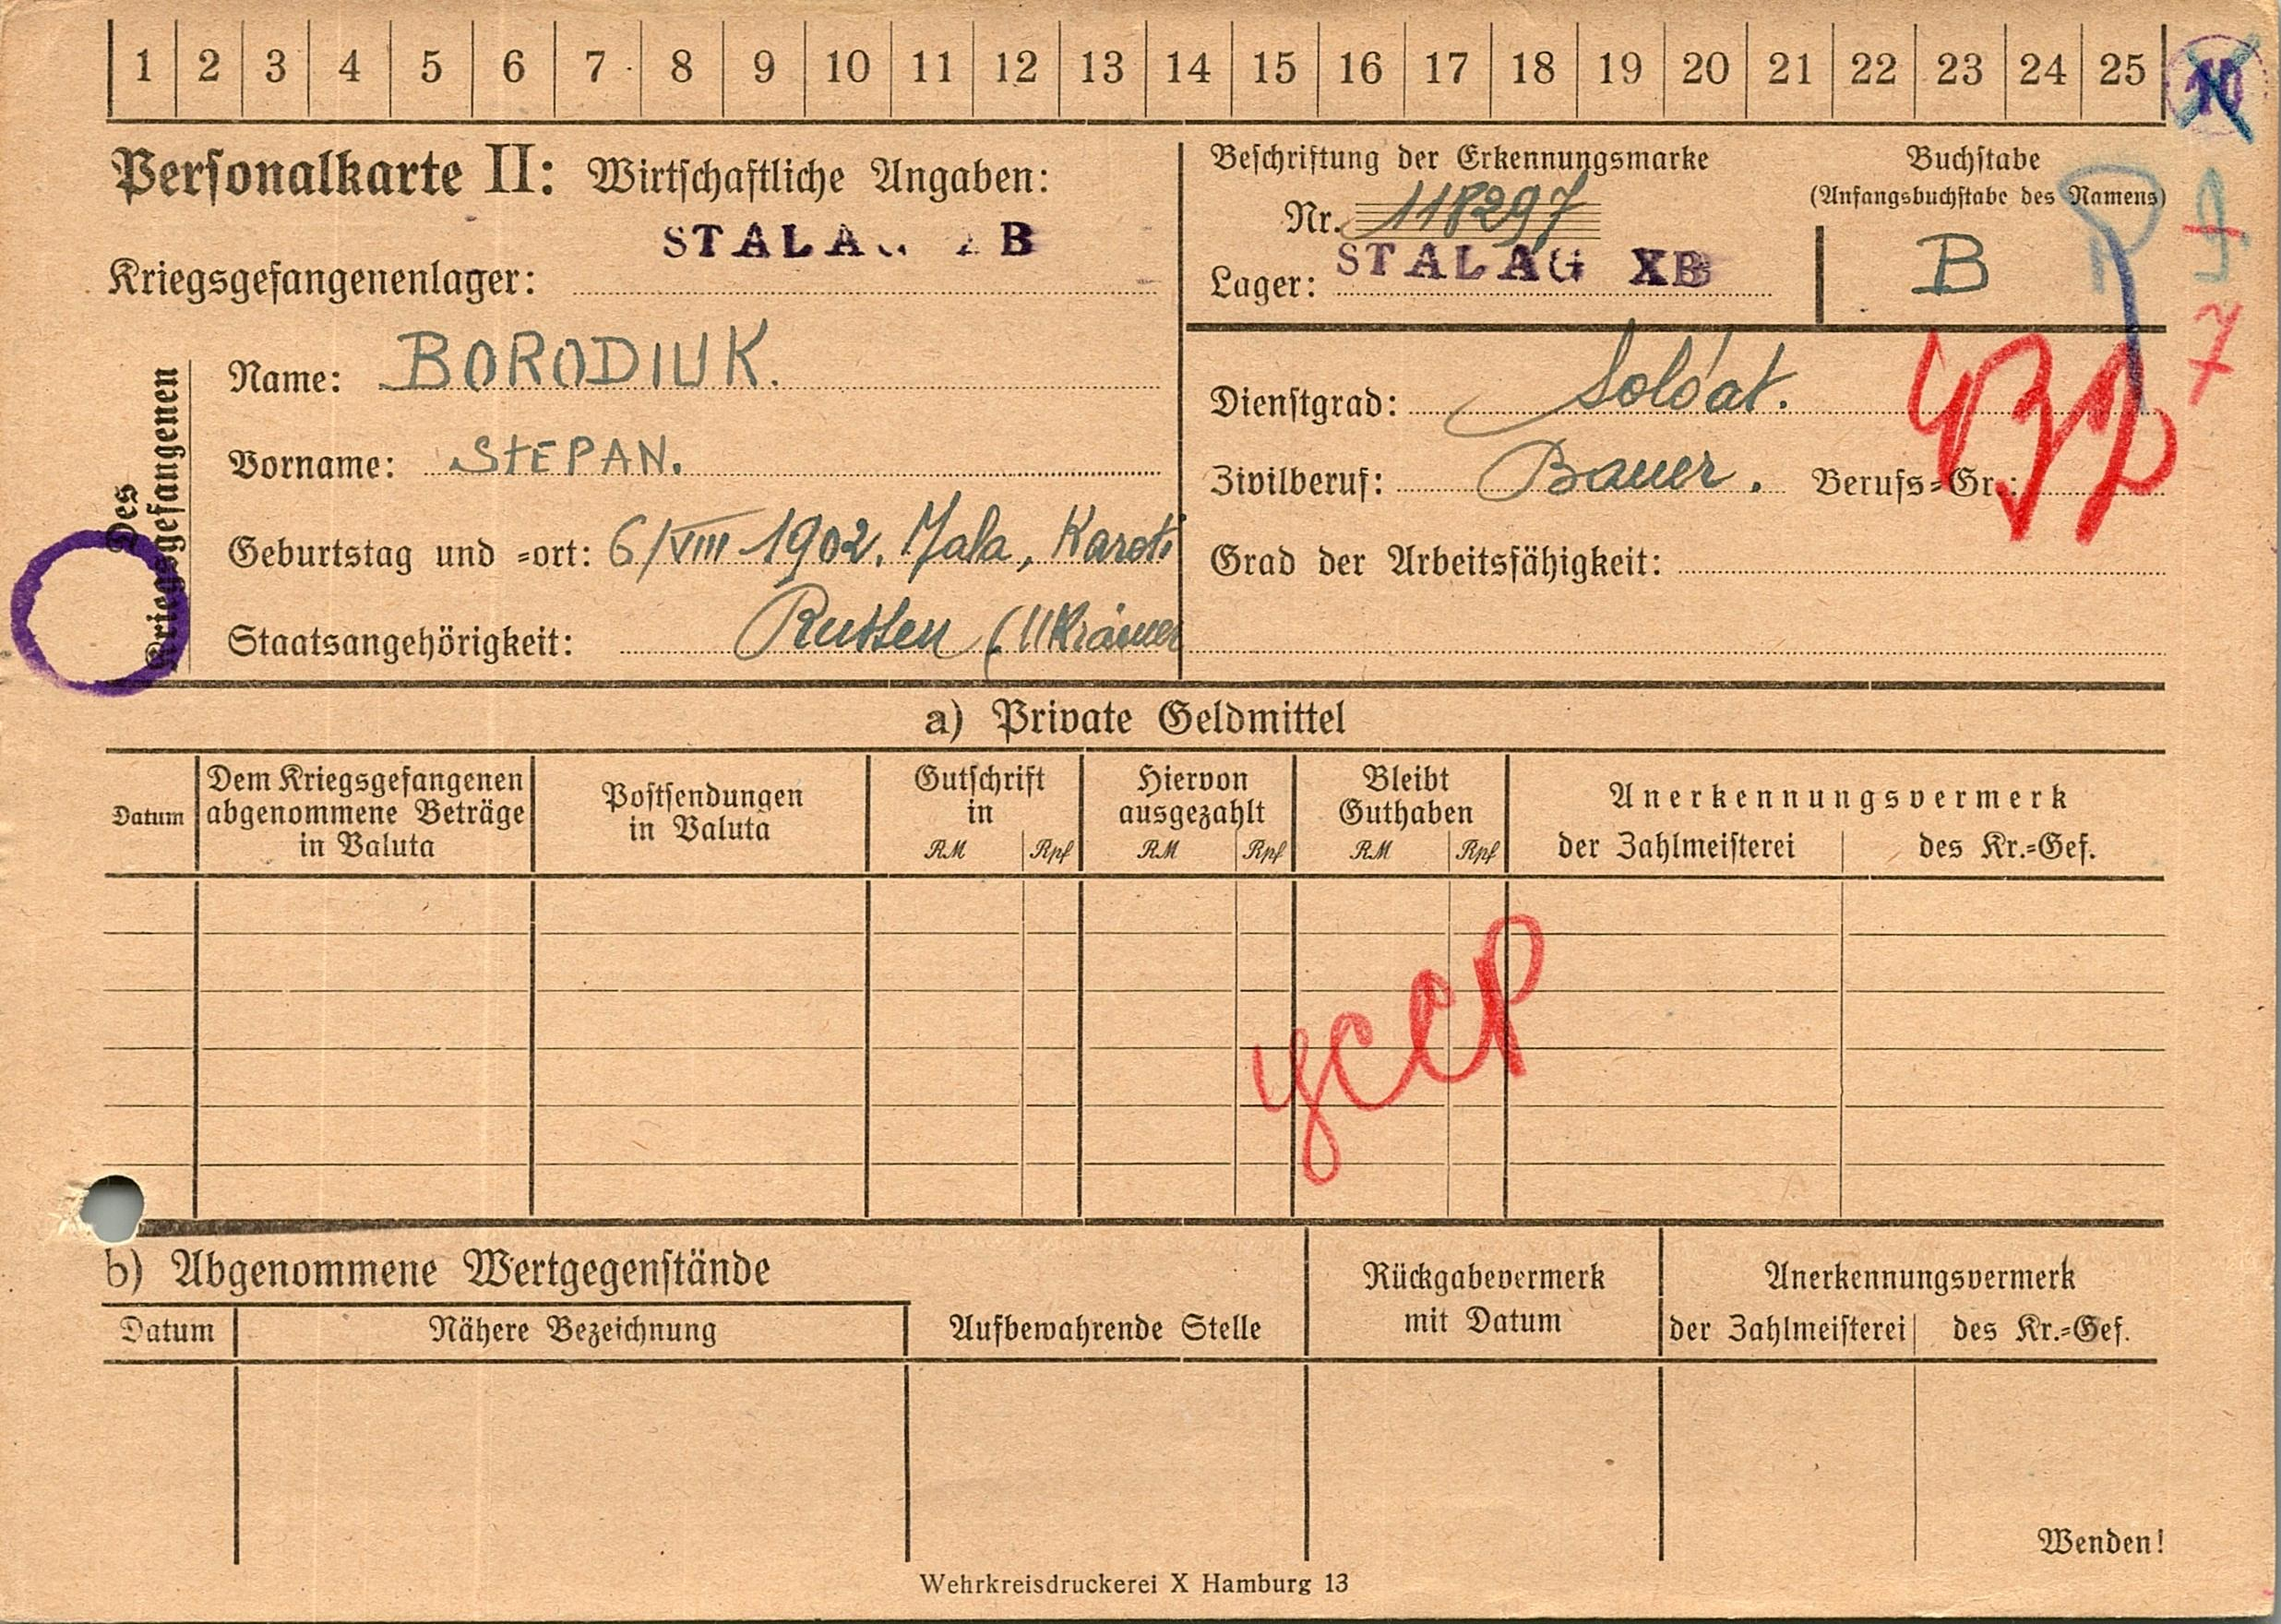 1 2 3 4 5 6 7 8 9 10 11 12 13 14 15 16 17 18 19 20 21 22 23 24 25
Personalkarte II: Wirtschaftliche Angaben:
Kriegsgefangenenlager: STALAG XB
Beschriftung der Erkennungsmarke
Nr. 118297
Lager: STALAG XB
Buchstabe
(Anfangsbuchstabe des Namens)
B
Des Kriegsgefangenen
Name: BORODIUK.
Vorname: STEPAN.
Geburtstag und =ort: 6/VIII 1902.
Staatsangehörigkeit: Russen (Ukrainer
Dienstgrad: Soldat.
Zivilberuf: Bauer. Berufs=Gr.:
Grad der Arbeitsfähigkeit:
7
a) Private Geldmittel
Datum
Dem Kriegsgefangenen
abgenommene Beträge
in Valuta
Postsendungen
in Valuta
Gutschrift
in
RM Rpf
Hiervon
ausgezahlt
RM Rpf
Bleibt
Guthaben
RM Rpf
Anerkennungsvermerk
der Zahlmeisterei des Kr.=Gef.
УССР
b) Abgenommene Wertgegenstände
Datum Nähere Bezeichnung
Aufbewahrende Stelle
Rückgabevermerk
mit Datum
Anerkennungsvermerk
der Zahlmeisterei des Kr.=Gef.
Wenden!
Wehrkreisdruckerei X Hamburg 13